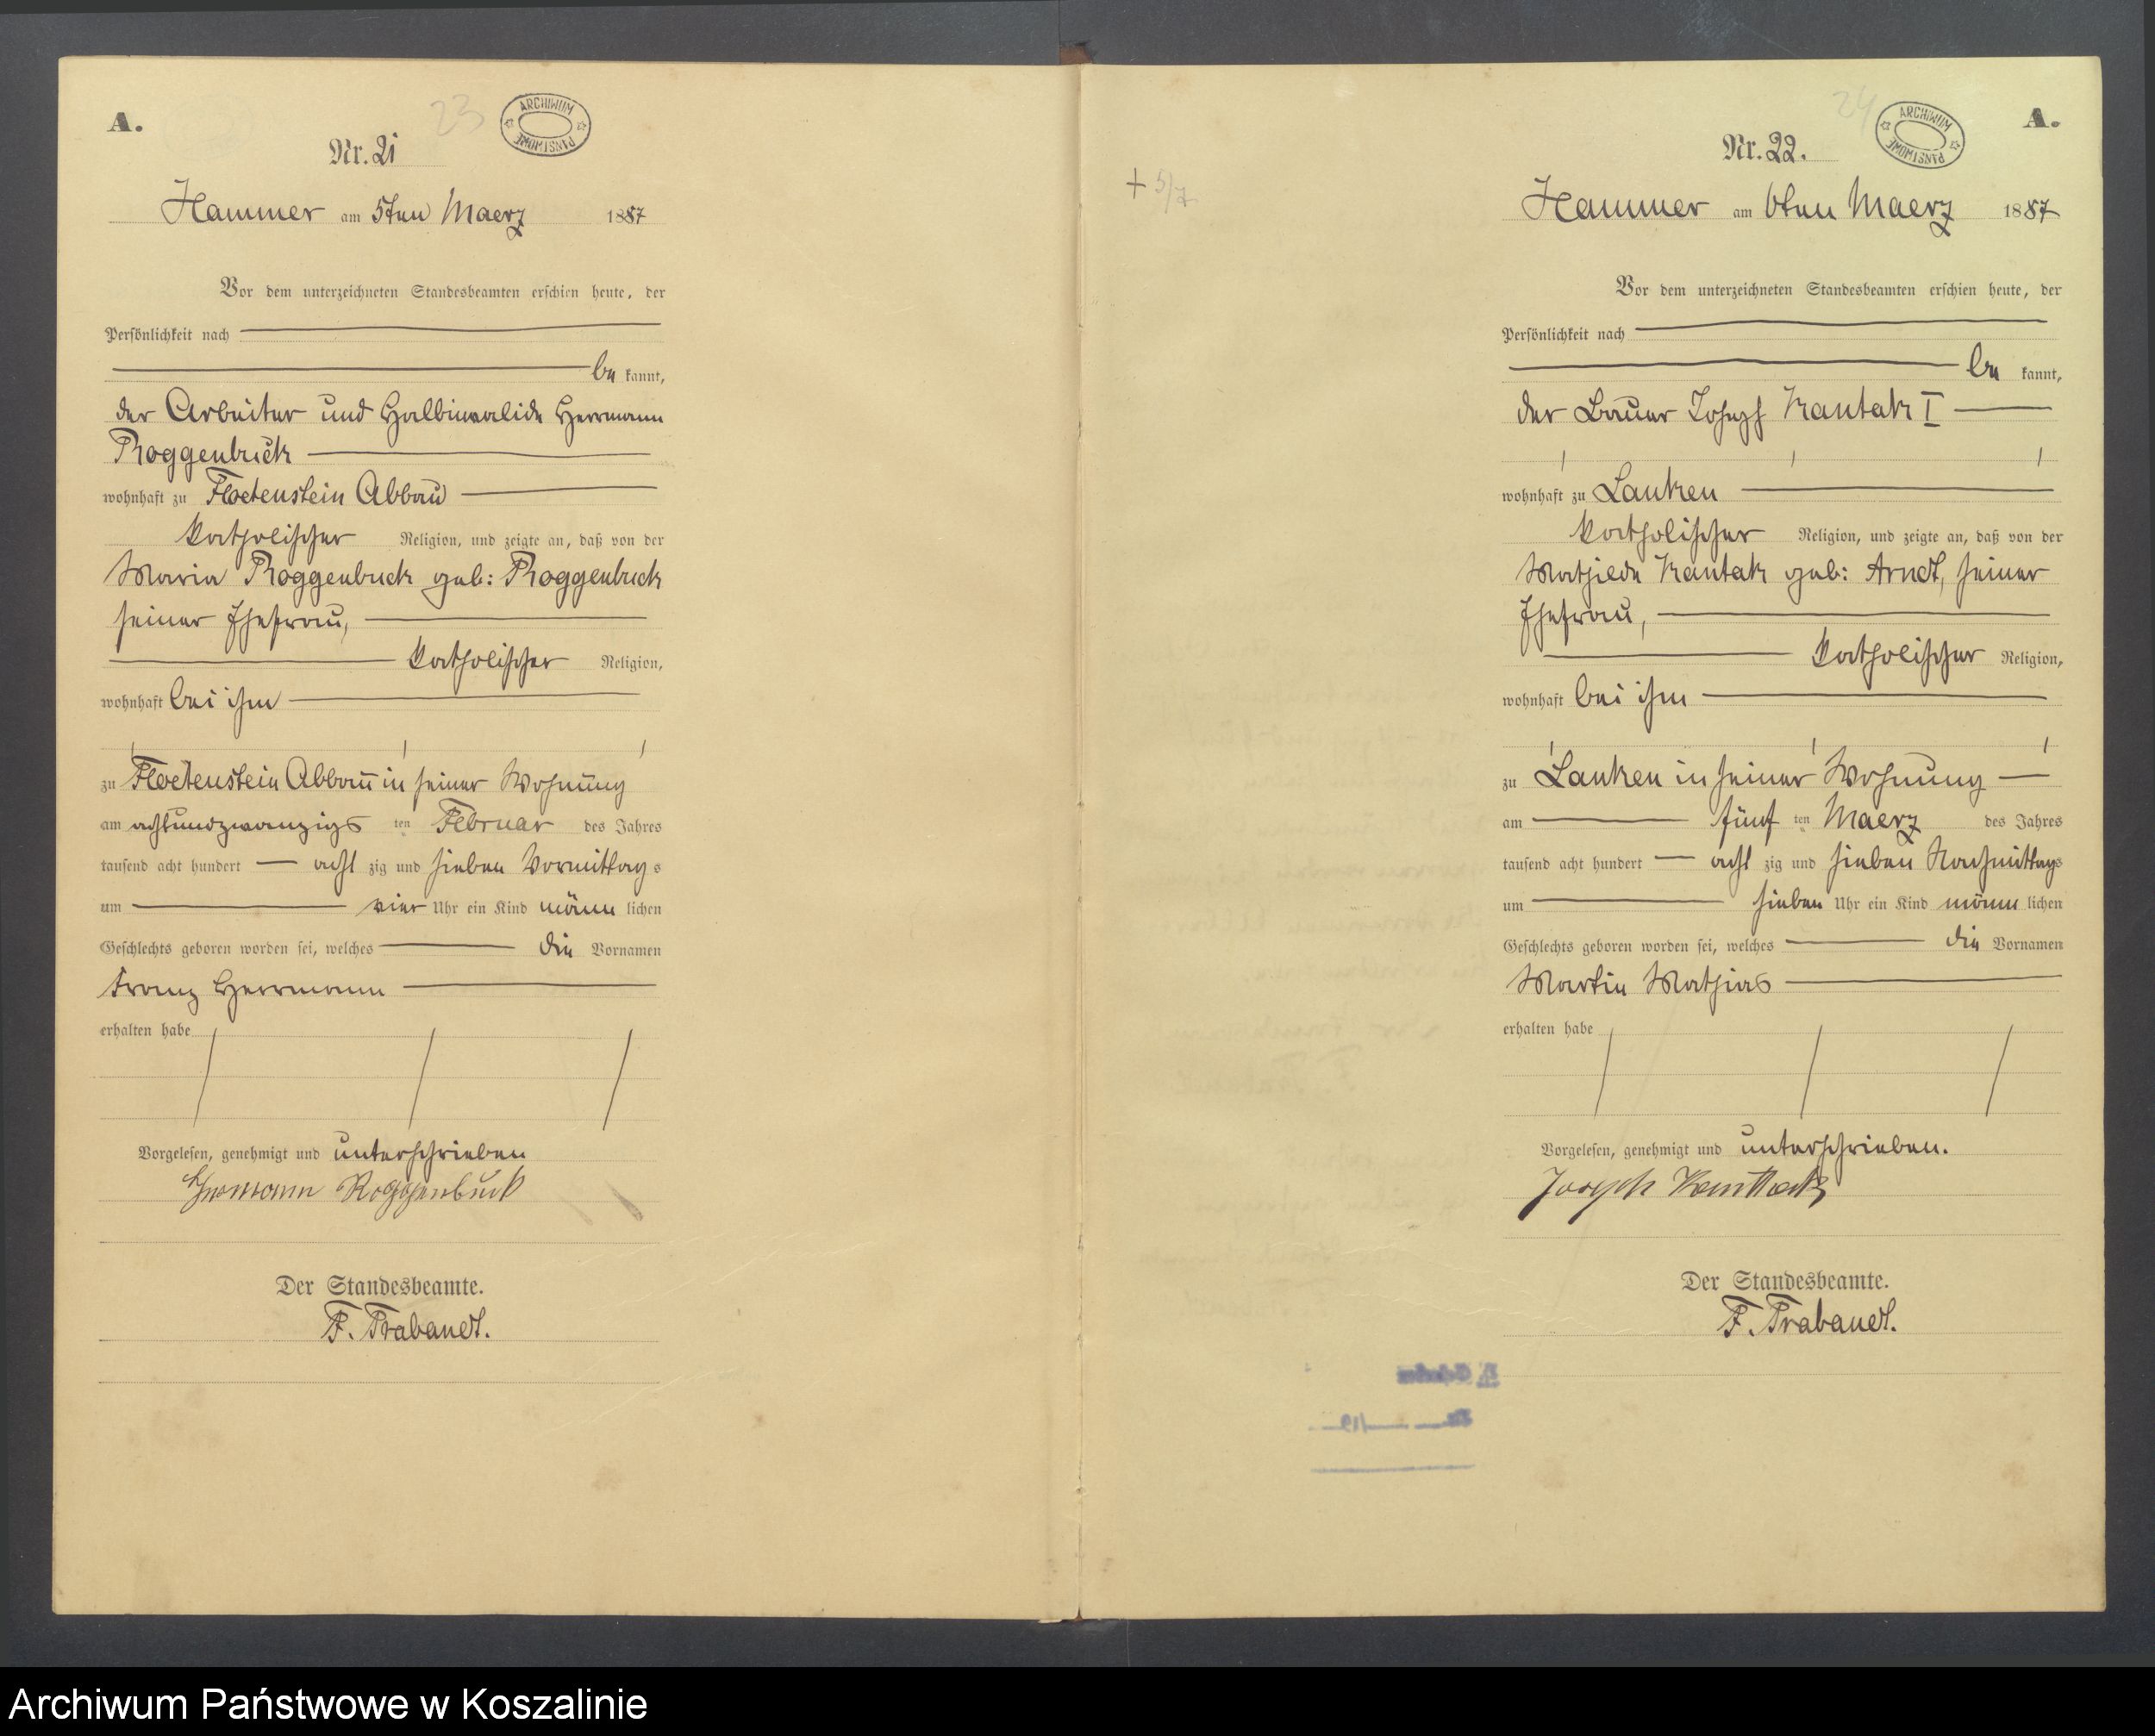 A.
23
ARCHIWUM PAŃSTWOWE
Nr. 21
Hammer am 5ten Maerz 1887
Vor dem unterzeichneten Standesbeamten erschien heute, der
Persönlichkeit nach
be kannt,
der Arbeiter und Halbinvalide Herrmann
Roggenbuck
wohnhaft zu Floetenstein Abbau
katholischer Religion, und zeigte an, daß von der
Maria Roggenbuck geb: Roggenbuck
seiner Ehefrau,
katholischer Religion,
wohnhaft bei ihm
zu Floetenstein Abbau in seiner Wohnung
am achtundzwanzigs ten Februar des Jahres
tausend acht hundert acht zig und sieben Vormittag s
um vier Uhr ein Kind männ lichen
Geschlechts geboren worden sei, welches die Vornamen
Franz Herrmann
erhalten habe
Vorgelesen, genehmigt und unterschrieben
Hermann Roggenbuck
Der Standesbeamte.
F. Trabandt.
+ 5/7
24
ARCHIWUM PAŃSTWOWE
A.
Nr. 22.
Hammer am 6ten Maerz 1887
Vor dem unterzeichneten Standesbeamten erschien heute, der
Persönlichkeit nach
be kannt,
der Bauer Joseph Kantak I
wohnhaft zu Lanken
katholischer Religion, und zeigte an, daß von der
Mathilde Kantak geb: Arndt, seiner
Ehefrau,
katholischer Religion,
wohnhaft bei ihm
zu Lanken in seiner Wohnung
am fünf ten Maerz des Jahres
tausend acht hundert acht zig und sieben Nachmittags
um sieben Uhr ein Kind männ lichen
Geschlechts geboren worden sei, welches die Vornamen
Martin Mathias
erhalten habe
Vorgelesen, genehmigt und unterschrieben.
Joseph Kanttack
Der Standesbeamte.
F. Trabandt.
Archiwum Państwowe w Koszalinie